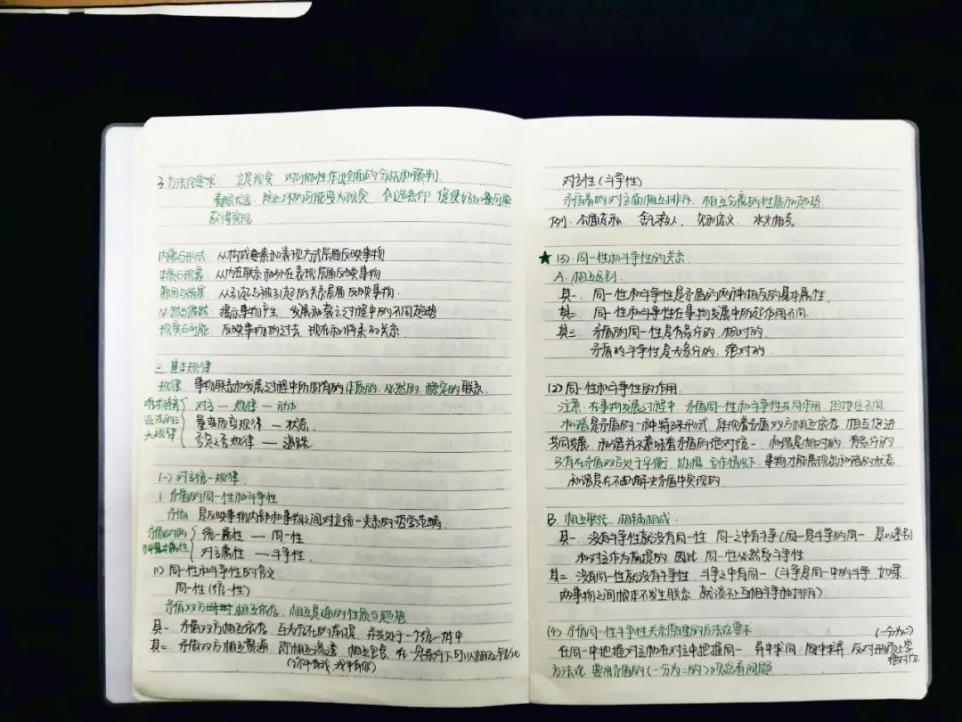 3.方法论要求 立足现实 对可能性作出全面的分析和预判.
着眼长远 防止坏的可能变为现实 创造条件 促使好的可能
获得实现
内容与形式 从构成要素和表现方式层面反映事物
本质与现象 从内在联系和外在表现层面反映事物
原因与结果 从引起与被引起的关系层面反映事物.
必然与偶然 揭示事物产生、发展和衰亡过程中的不同趋势
现实与可能 反映事物的过去、现在和将来的关系
三.基本规律
规律. 事物联系和发展过程中所固有的本质的、必然的、稳定的联系.
唯物辩证法的三大规律
对立统一规律—动力
量变质变规律—状态.
否定之否定规律—道路.
(一)对立统一规律.
1.矛盾的同一性和斗争性
矛盾 是反映事物内部和事物之间对立统一关系的哲学范畴
矛盾的两个基本属性
统一属性—同一性
对立属性—斗争性.
(1)同一性和斗争性的含义
同一性(统一性)
矛盾双方相互依存、相互贯通的性质与趋势
其一. 矛盾双方相互依存 互为存在的前提 并共处于一个统一体中
其二. 矛盾双方相互贯通 即相互渗透、相互包含 在一定条件下可以相互转化
(你中有我,我中有你)
对立性(斗争性)
矛盾着的对立面相互排斥、相互分离的性质和趋势
例. 水火相克
★(3).同一性和斗争性的关系
A.相互区别.
其一. 同一性和斗争性是矛盾的两种相反的基本属性.
其二 同一性和斗争性在事物发展中所起作用不同.
其三 矛盾的同一性是有条件的、相对的.
矛盾的斗争性是无条件的、绝对的.
(2)同一性和斗争性的作用.
注意.在事物发展过程中.矛盾同一性和斗争性共同作用.但地位不同
和谐是矛盾的一种特殊形式 体现着矛盾双方相互依存、相互促进
共同发展.和谐并不意味着矛盾的绝对统一.和谐是相对的、有条件的
只有在矛盾双方处于平衡、协调、合作情况下.事物才能展现出和谐的状态
和谐是在不断解决矛盾中实现的
B.相互联结、相辅相成.
其一 没有斗争性就没有同一性 同一之中有斗争(同一是斗争的同一 是以差别
和对立作为前提的.因此.同一性必然与斗争性
其二 没有同一性就没有斗争性 斗争之中有同一(斗争是同一中的斗争 如果
两事物之间根本不发生联系 就谈不上互相斗争和排斥)
(4).矛盾同一性斗争性关系原理的方法论要求 (一分为二)
在同一中把握对立和在对立中把握同一 异中求同 同中求异 反对
方法论 要用矛盾的(一分为二的)观点看问题